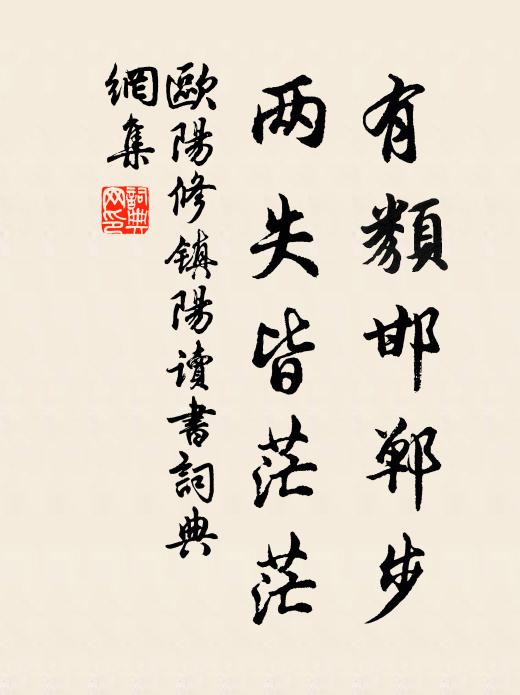 有類邯鄲步
两失皆茫茫
歐陽修鎮陽讀書詞典
網集
詞典
网印